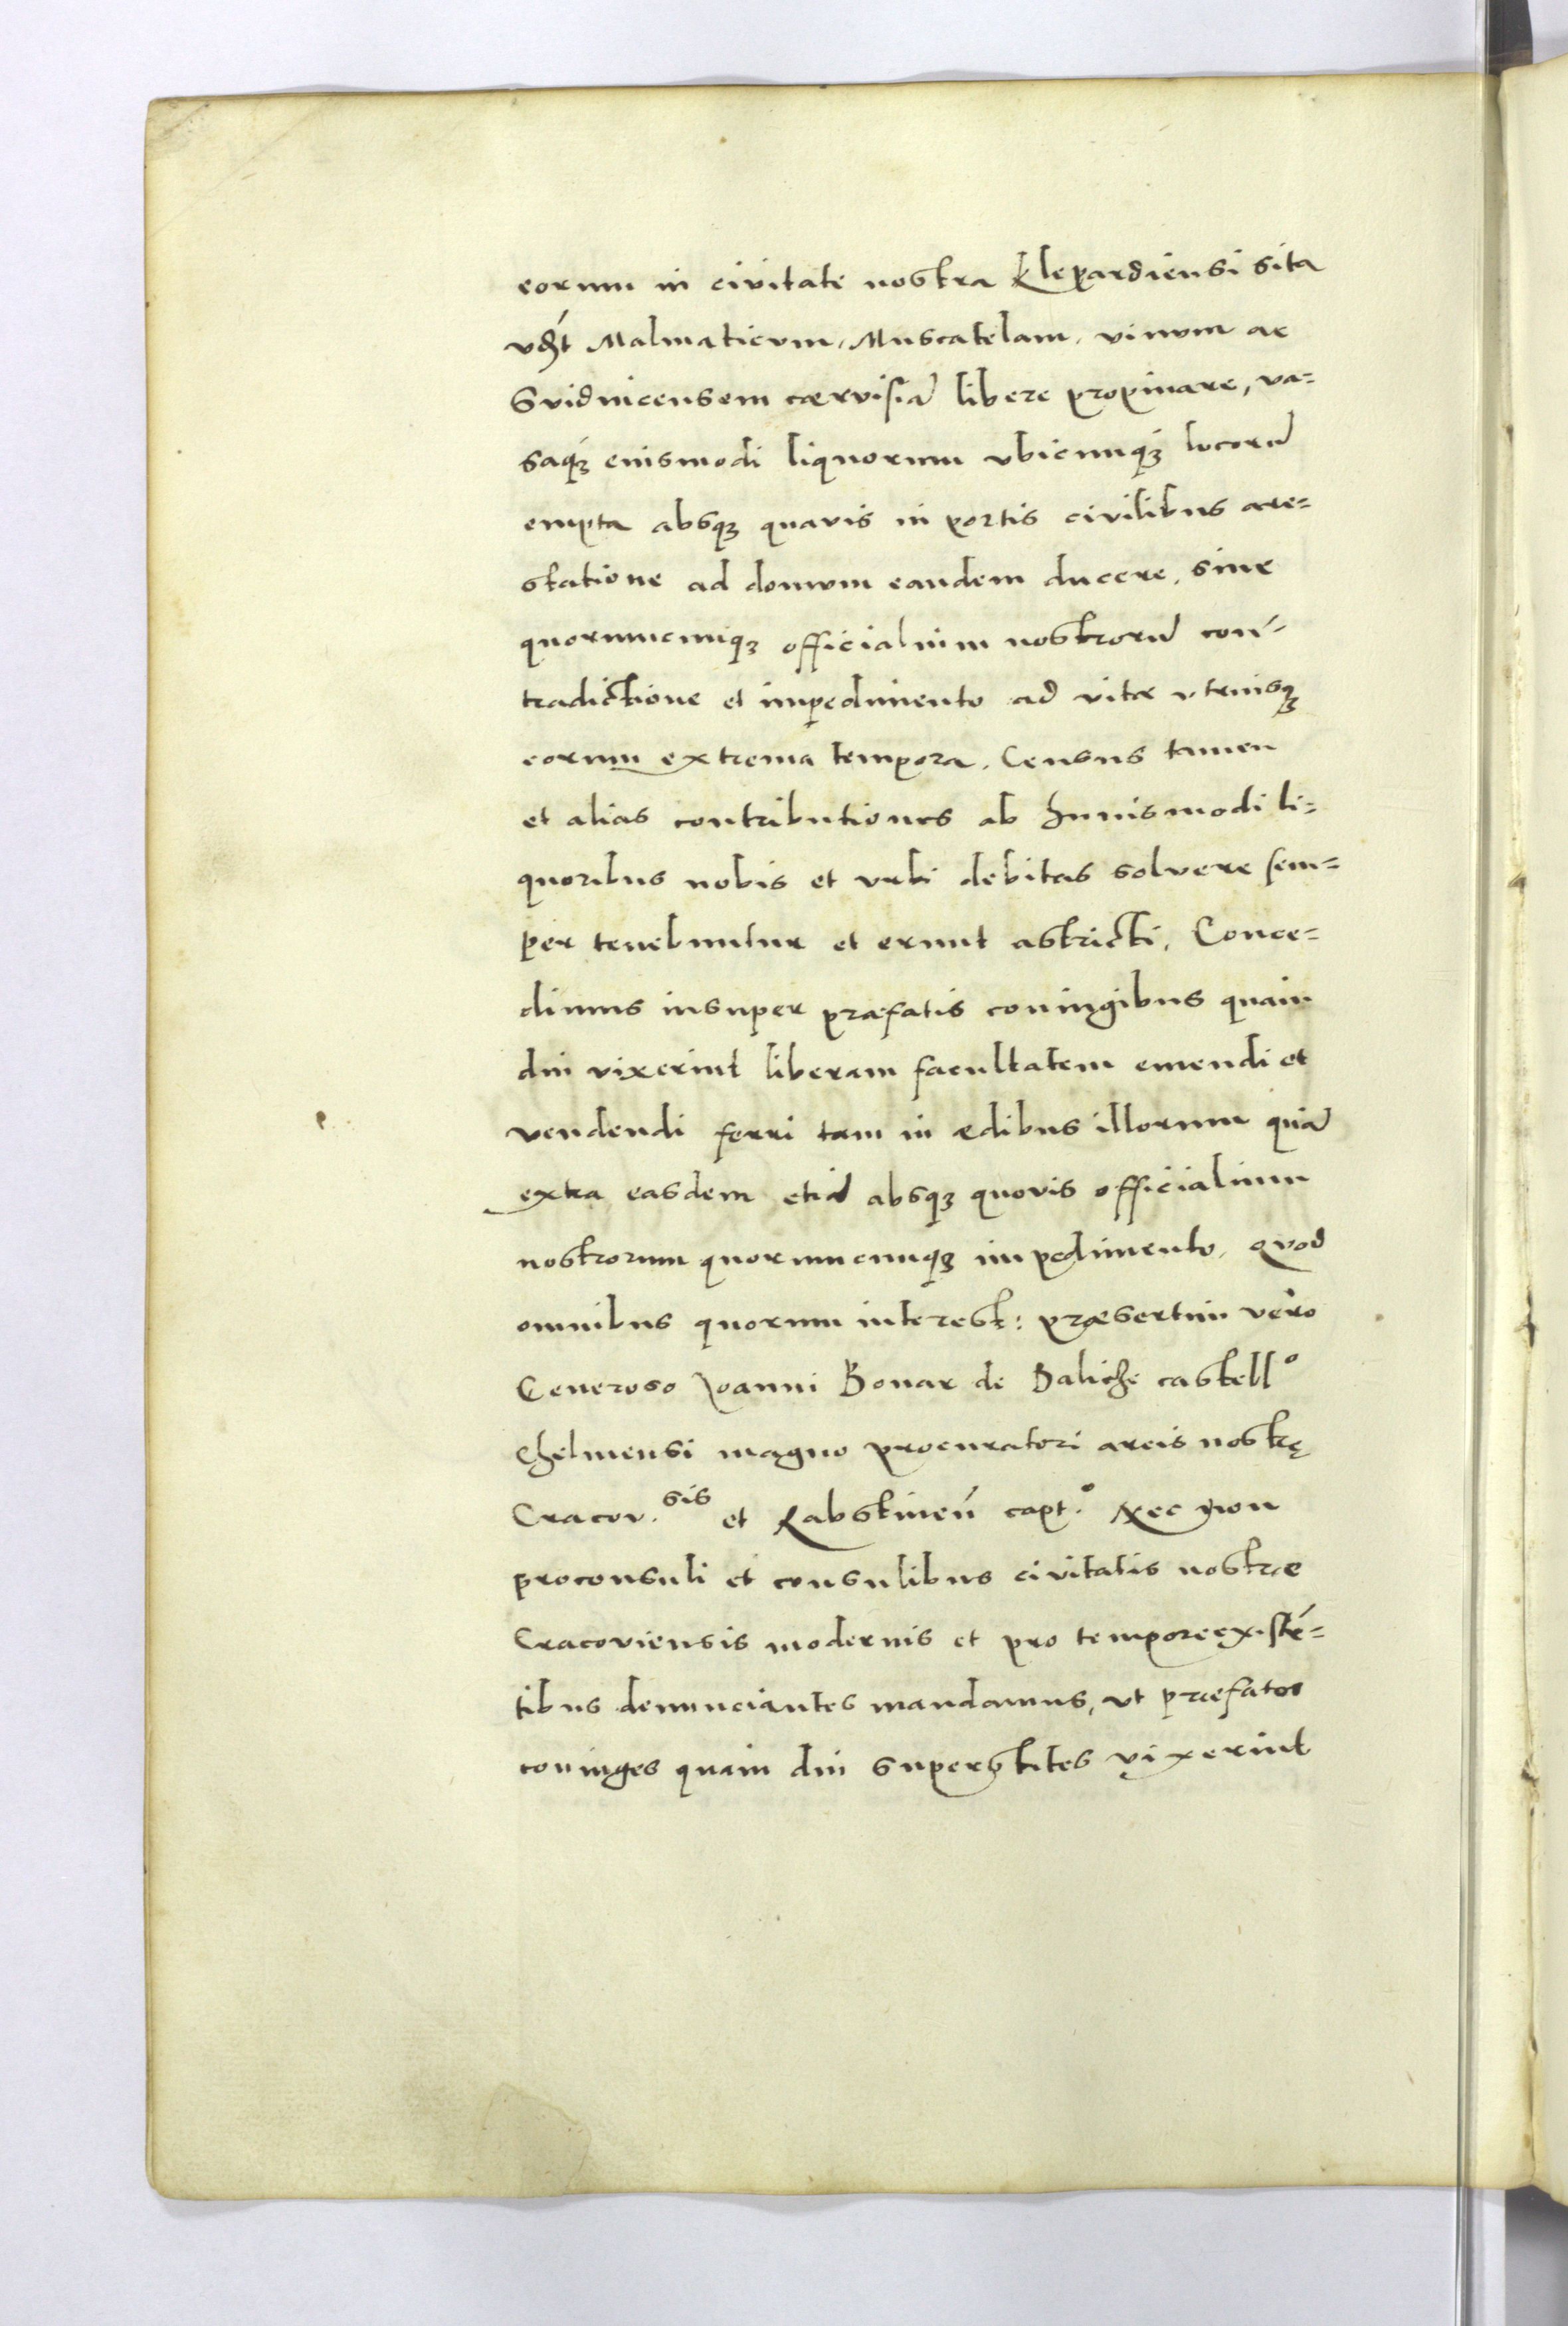 eorum in civitate nostra Klepardiensi sita
vdʒt Malmaticum, Muscatelam, vinum ac
Svidnicensem cærvisiã libere propinare, va=
saqʒ eiusmodi liquorum vbicunqʒ locorũ
empta absqʒ quavis in portis civilibus are=
statione ad domum eandem ducere, sine
quorumcunqʒ officialium nostrorũ con=
tradictione et impedimento ad vitæ utriusqʒ
eorum extrema tempora. Census tamen
et alias contributiones ab huiusmodi li=
quoribus nobis et vrbi debitas solvere sem=
per tenebuntur et erunt astricti. Conce=
dimus insuper præfatis coniugibus quam
diu vixerint liberam facultatem emendi et
vendendi ferri tam in ædibus illorum quã
extra easdem etiã absqʒ quovis officialium
nostrorum quorumcunqʒ impedimento. Quod
omnibus quorum interest: præsertim vero
Generoso Joanni Bonar de Baliche castell°
Chelmensi magno procuratori arcis nostrę
Cracov.sis et Rabstineñ capt.° Nec non
proconsuli et consulibus civitatis nostræ
Cracoviensis modernis et pro tempore existẽ=
tibus denunciantes mandamus, vt præfatos
coniuges quam diu superstites vixerint